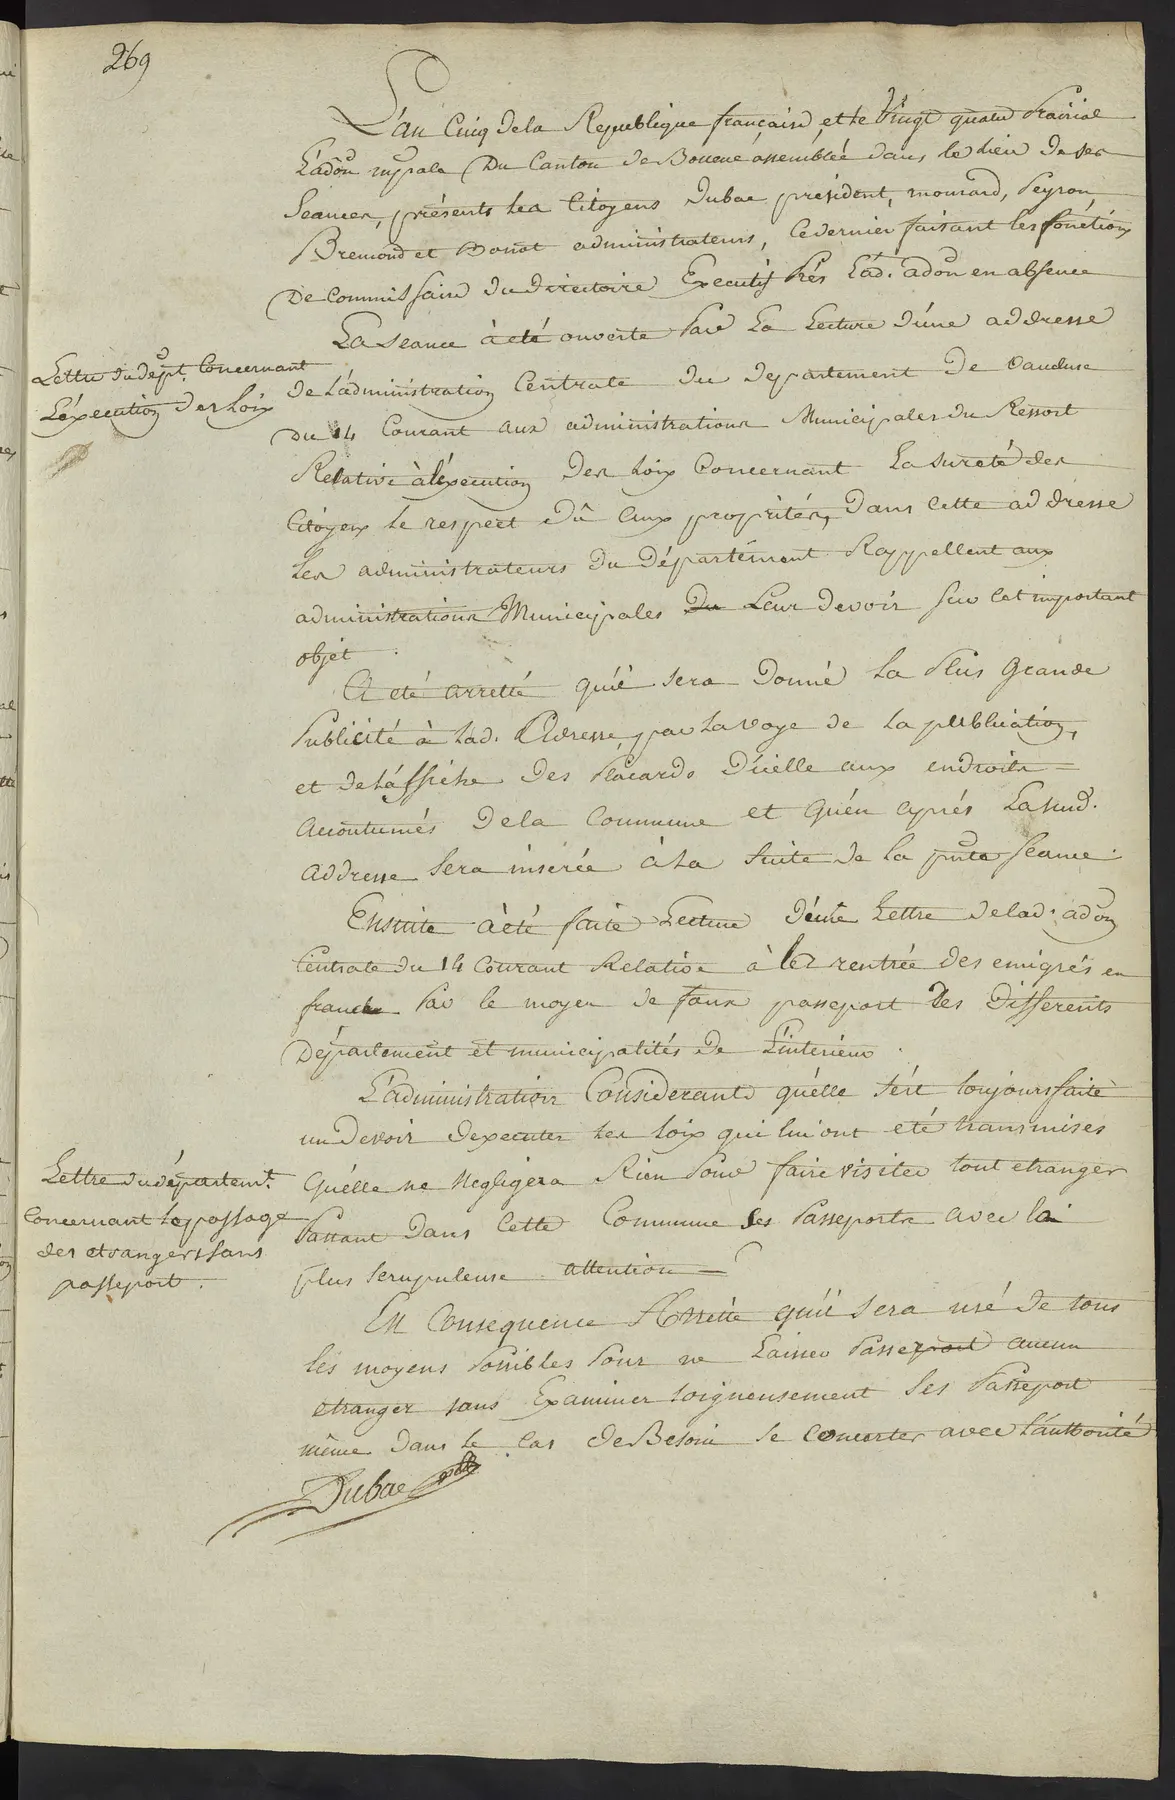 269
L'an Cinq de la Republique française, et le Vingt quatre Prairial
L'adôn mpale Du Canton de assemblée dans le Lieu de ses
Seances, présents les Citoyens Dubac président, mourard, Peyron,
Bremond et Bonot administrateurs, ce dernier faisant les fonctions
De commissaire du directoire Executif Prés Lad. adôn en absence
La seance à eté ouverte Par La Lecture d'une addresse
Lettre du dépt. Concernant
L'éxecution des Loix
de L'administration Centrale du departement De Vaucluse
Du 14 Courant aux administrations Municipales du Ressort
Relative à l'éxecution Des Loix Concernant La sureté des
Citoyens le respect Dû aux proprités, Dans cette addresse
Les administrateurs Du Département Rappellent aux
administrations Municipales Du Leur Devoir sur cet important
objet.
A eté arretté qu'il sera Donné La Plus Grande
Publicité à Lad. Adresse, par La voye de la publication,
et de L'affiche Des Placards D'icelle aux endroits
accoutumés De la Commune et qu'en après Lasusd.
addresse sera inserée à la suite de la pnte seance.
Ensuite à eté faite Lecture D'une Lettre de lad. adôn
Centrale du 14 Courant Relative à la rentrée des emigrés en
france Par le moyen de faux passeport des Differents
Département et municipalités de L'interieur.
L'administration Considerant qu'elle s'est toujours faite
un Devoir d'executer les Loix qui lui ont eté transmises
Lettre du départemt.
Concernant le passage
des etrangers sans
passeport.
Qu'elle ne Negligera Rien Pour faire visiter tout etranger
Passant Dans Cette Commune ses Passeports avec la
plus scrupuleuse attention
En Consequence Arrette qu'il sera usé de tous
les moyens Possibles Pour ne Laisser Passer aucun
etranger sans Examiner soigneusement ses Passeport
même Dans le Cas de Besoin se concerter avec L'authorité
Dubac pdt